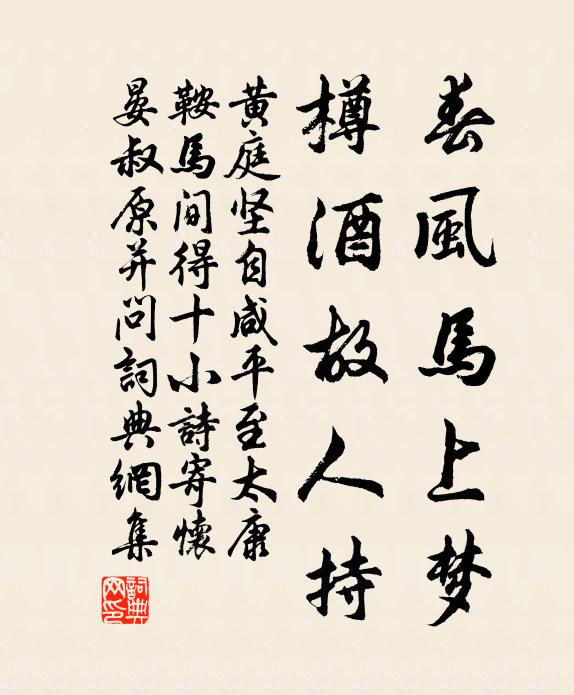 春風馬上梦
樽酒故人持
黄庭坚自咸平至太康
鞍馬间得十小詩寄懷
晏叔原并问詞典網集
詞典网印